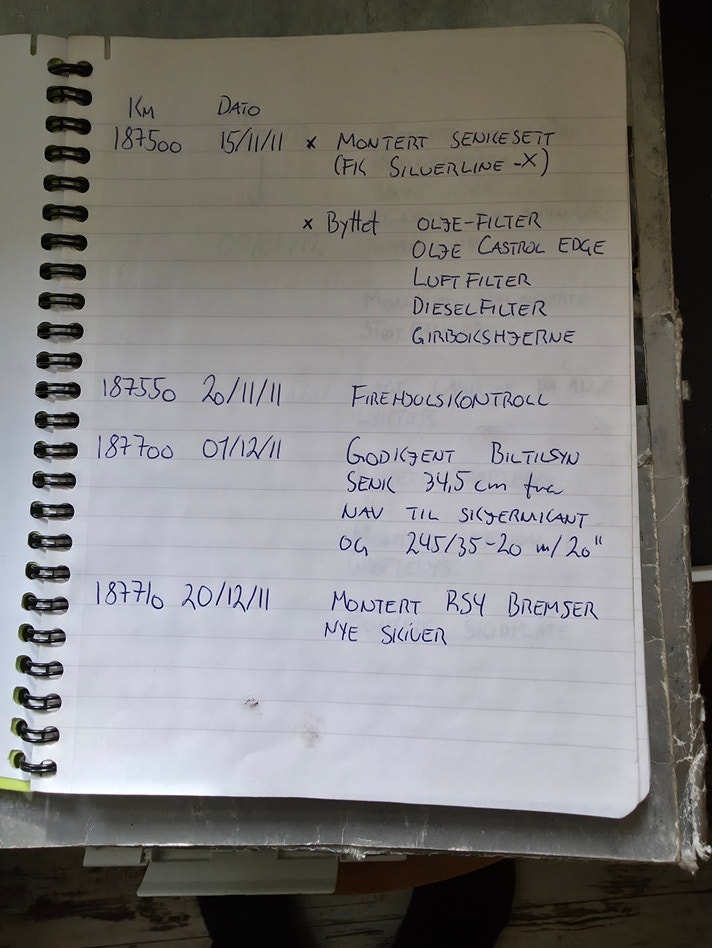 KM DATO
187500 15/11/11 x MONTERT SENKESETT
(FK SILVERLINE -X)
x Byttet OLJE-FILTER
OLJE CASTROL EDGE
LUFTFILTER
DIESELFILTER
GIRBOKSHJERNE
187550 20/11/11 FIREHJULSKONTROLL
187700 01/12/11 GODKJENT BILTILSYN
SENK 34,5 cm fra
NAV TIL SKJERMKANT
OG 245/35-20 m/20"
187710 20/12/11 MONTERT RS4 BREMSER
NYE SKIVER